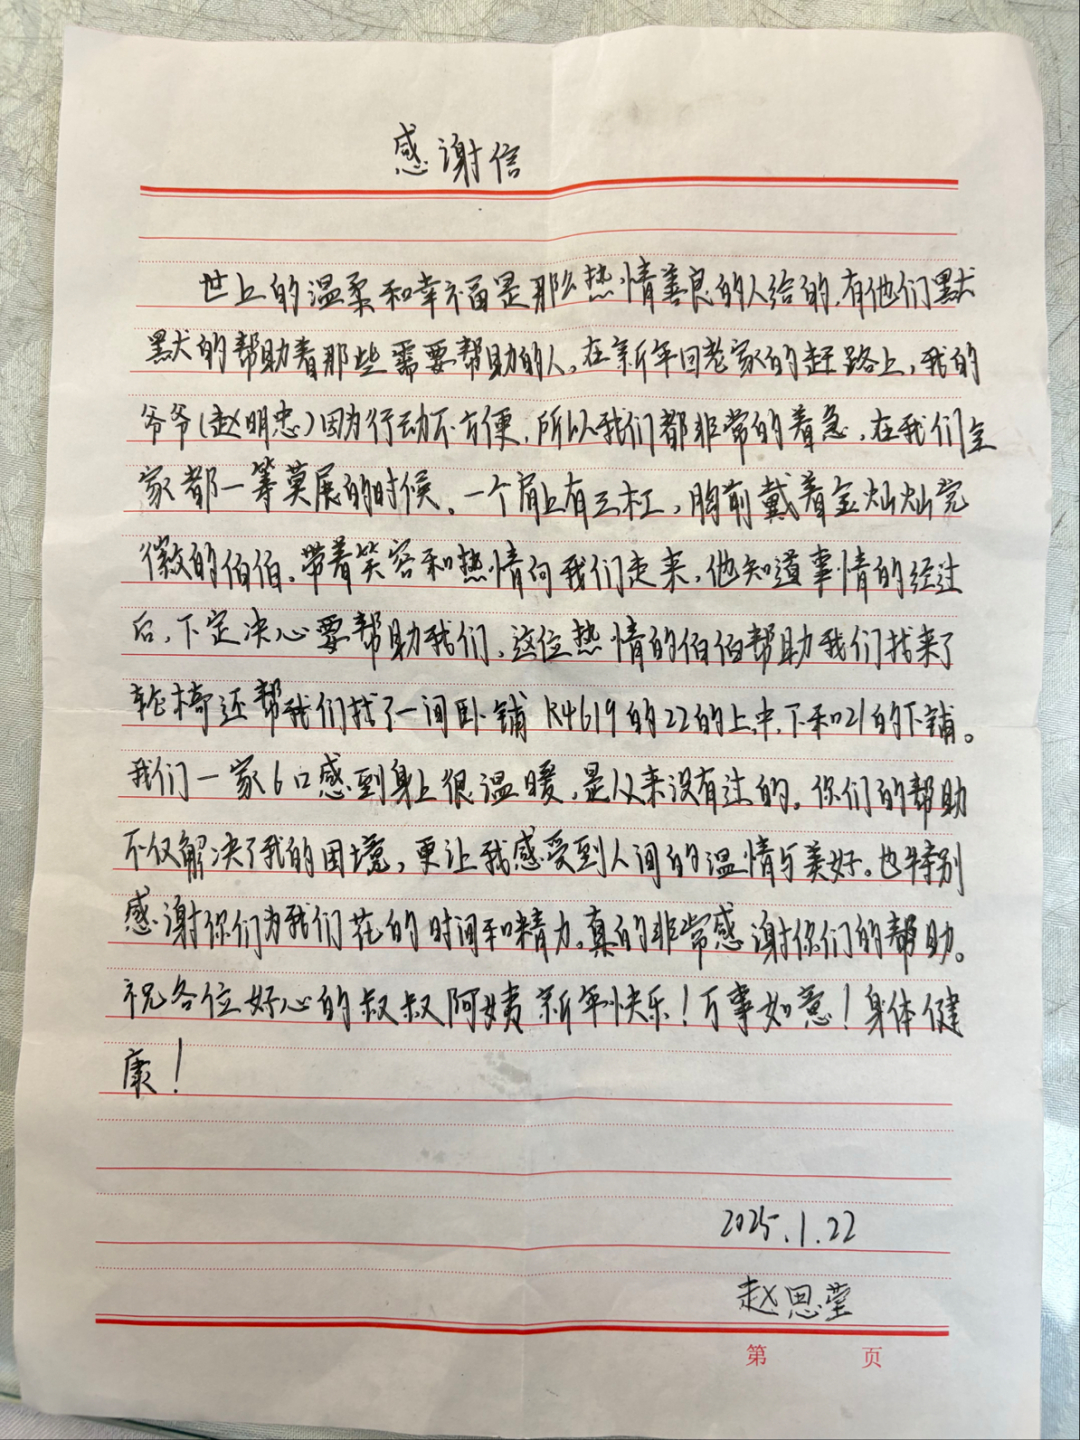 感谢信
世上的温柔和幸福是那么热情善良的人给的,有他们默
默的帮助着那些需要帮助的人。在新年回老家的赶路上,我的
爷爷(赵明忠)因为行动不方便,所以我们都非常的着急,在我们全
家都一筹莫展的时候。一个肩上有三杠,胸前戴着金灿灿党
徽的伯伯。带着笑容和热情向我们走来,他知道事情的经过
后,下定决心要帮助我们,这位热情的伯伯帮助我们找来了
轮椅还帮我们找了一间卧铺K4619的22的上,中,下和21的下铺。
我们一家6口感到身上很温暖,是从来没有过的。你们的帮助
不仅解决了我的困境,更让我感受到人间的温情与美好。也特别
感谢你们为我们花的时间和精力。真的非常感谢你们的帮助。
祝各位好心的叔叔阿姨新年快乐!万事如意!身体健
康!
2025.1.22
赵思莹
第 页